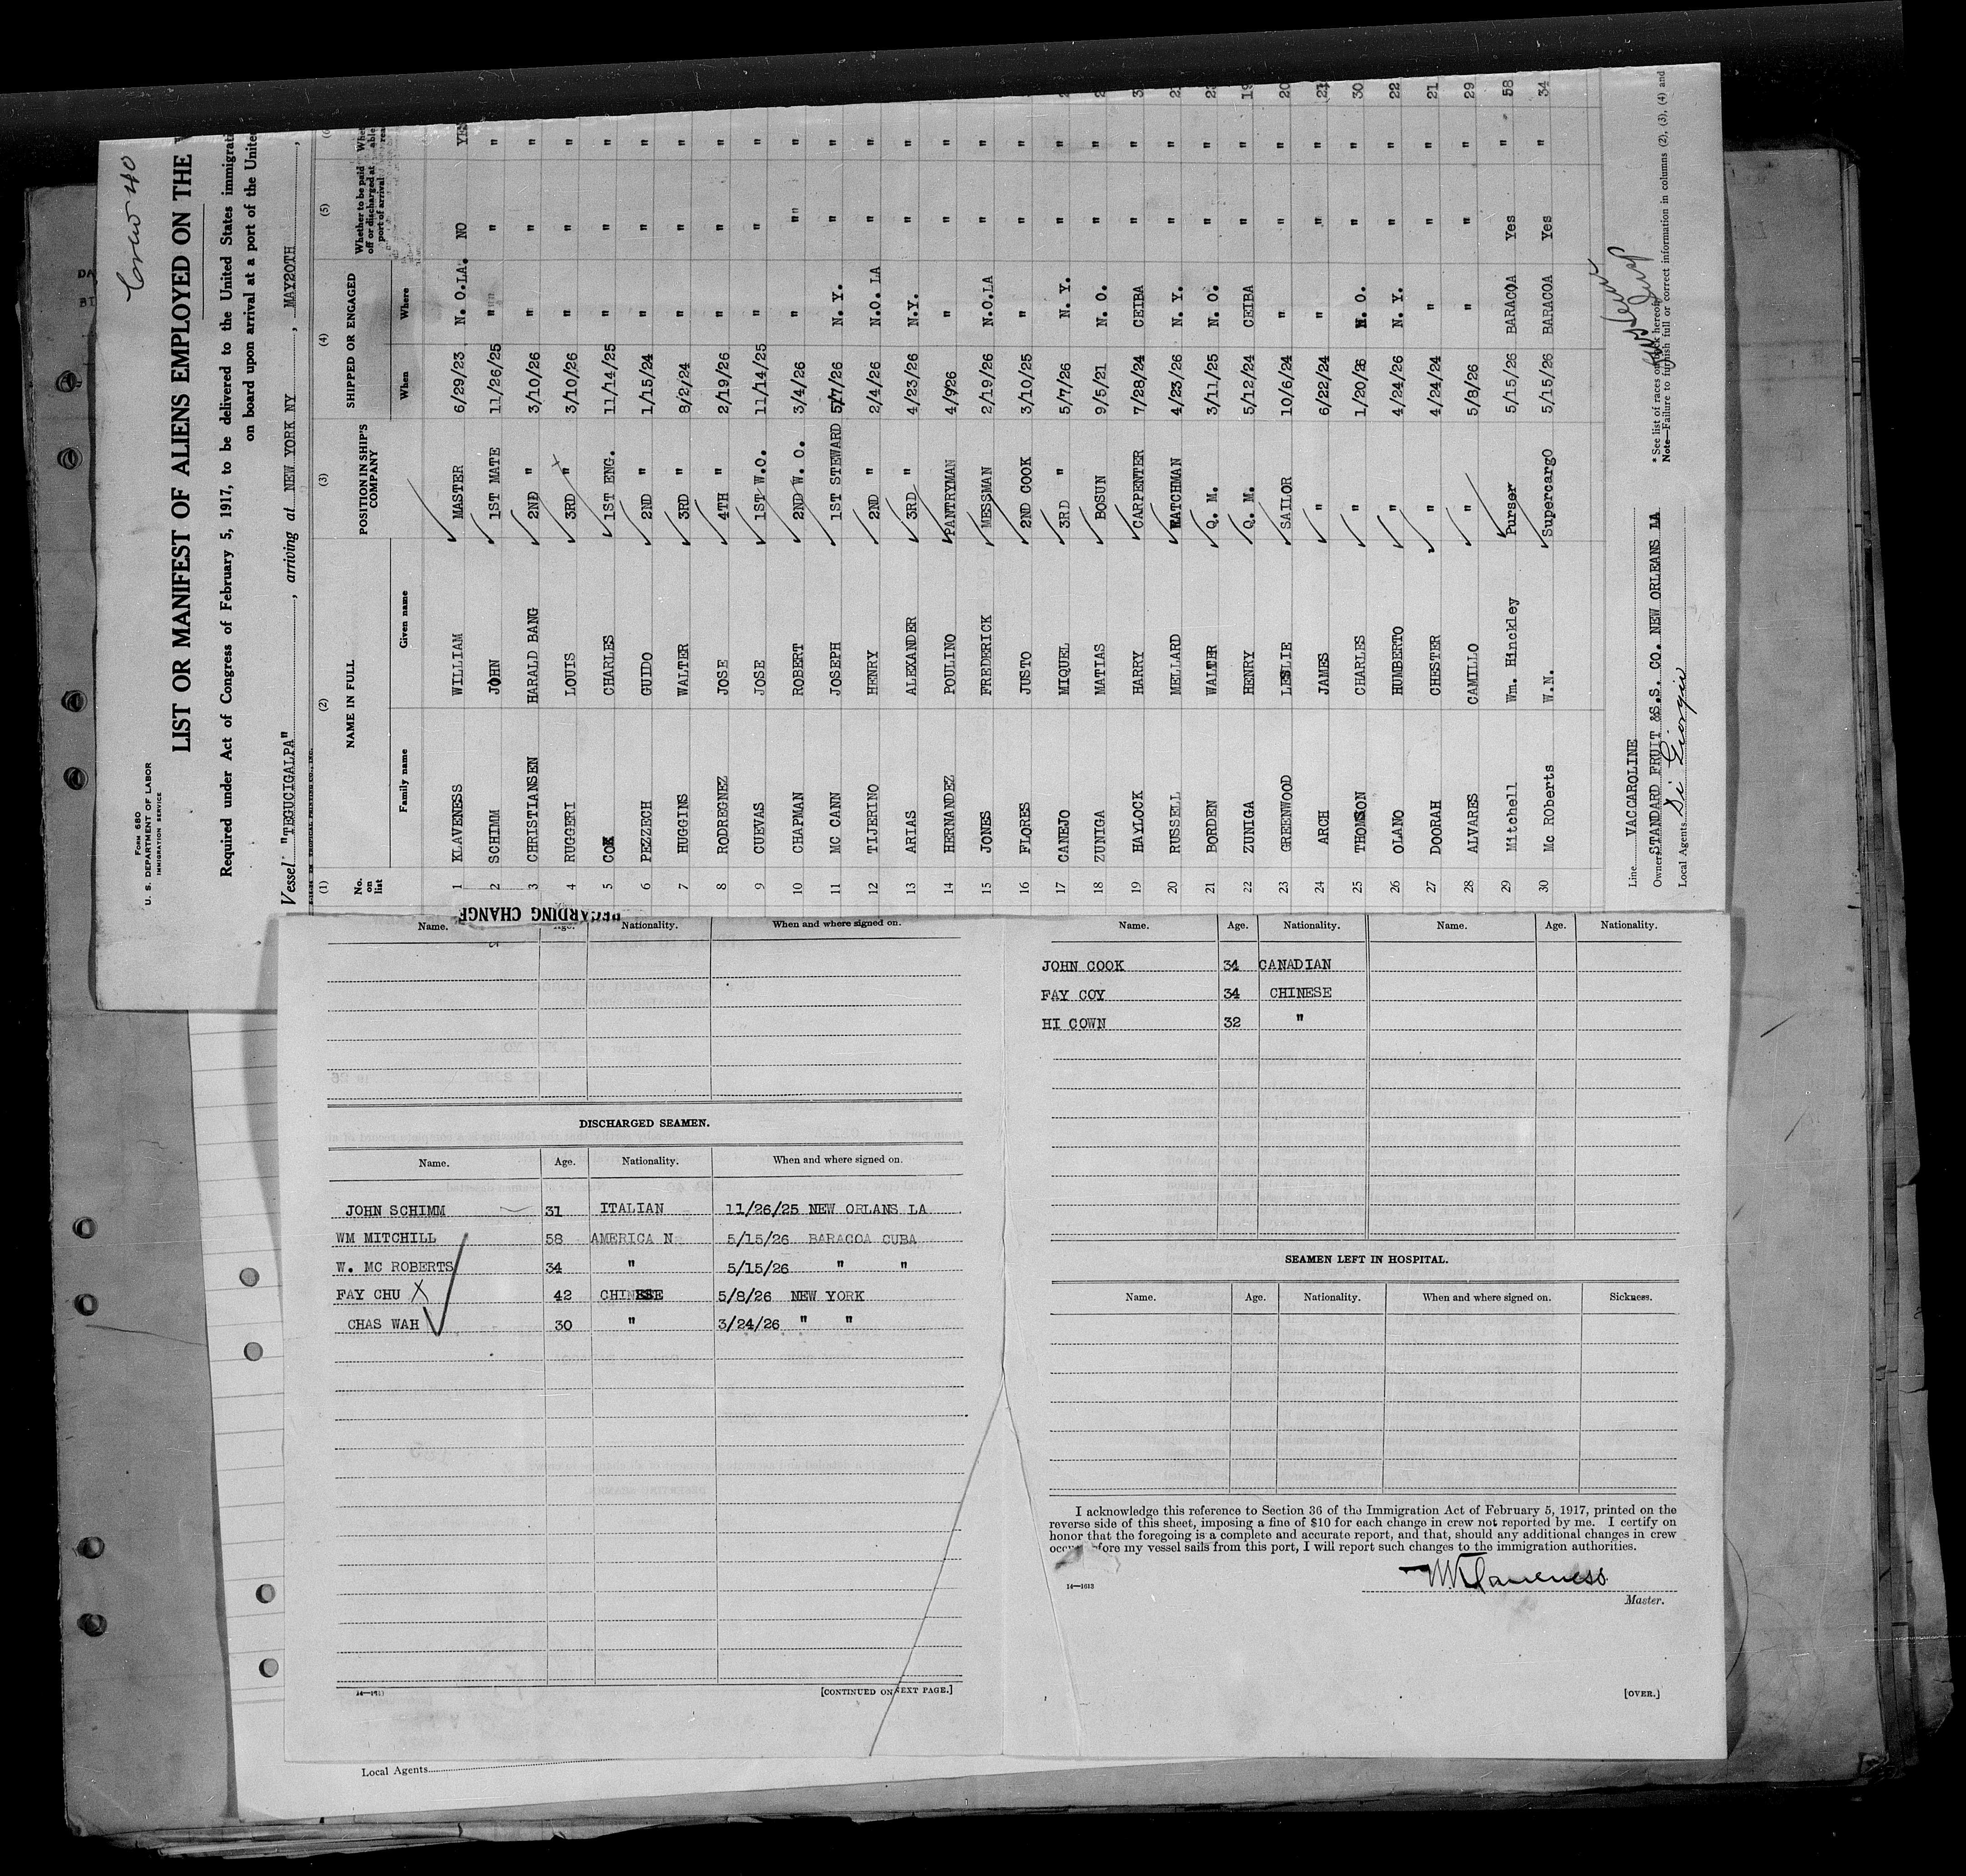 Crew 40
FORM 680
U. S. DEPARTMENT OF LABOR
IMMIGRATION SERVICE
LIST OR MANIFEST OF ALIENS EMPLOYED ON THE
Required under Act of Congress of February 5, 1917, to be delivered to the United States immigrati
on board upon arrival at a port of the Unite
Vessel "TEGUCIGALPA", arriving at NEW YORK NY, MAY20TH,
(1) (2) (3) (4) (5)
No. on list NAME IN FULL POSITION IN SHIP'S COMPANY SHIPPED OR ENGAGED Whether to be paid off or discharged at port of arrival
Family name Given name When Where
1 KLAVENESS WILLIAM MASTER 6/29/23 N. O.LA. NO YES
2 SCHIMM JOHN 1ST MATE 11/26/25 " " " "
3 CHRISTIANSEN HARALD BANG 2ND " 3/10/26 " " "
4 RUGGERI LOUIS 3RD " 3/10/26 " " "
5 COX CHARLES 1ST ENG. 11/14/25 " " "
6 PEZZECH GUIDO 2ND " 1/15/24 " " "
7 HUGGINS WALTER 3RD " 8/2/24 " " "
8 RODREGNEZ JOSE 4TH " 2/19/26 " " "
9 CUEVAS JOSE 1ST W.O. 11/14/25 " " "
10 CHAPMAN ROBERT 2ND W. O. 3/4/26 " " "
11 MC CANN JOSEPH 1ST STEWARD 5/7/26 N. Y. " "
12 TIJERINO HENRY 2ND " 2/4/26 N.O. LA " "
13 ARIAS ALEXANDER 3RD " 4/23/26 N.Y. " "
14 HERNANDEZ POULINO PANTRYMAN 4/9/26 " " "
15 JONES FREDERICK MESSMAN 2/19/26 N.O.LA " "
16 FLORES JUSTO 2ND COOK 3/10/25 " " "
17 CANEJO MIQUEL 3RD " 5/7/26 N. Y. " "
18 ZUNIGA MATIAS BOSUN 9/5/21 N. O. " "
19 HAYLOCK HARRY CARPENTER 7/28/24 CEIBA " "
20 RUSSELL MELLARD WATCHMAN 4/23/26 N. Y. " "
21 BORDEN WALTER Q. M. 3/11/25 N. O. " "
22 ZUNIGA HENRY Q. M. 5/12/24 CEIBA " " 19
23 GREENWOOD LESLIE SAILOR 10/6/24 " " " 20
24 ARCH JAMES " 6/22/24 " " "
25 THOMSON CHARLES " 1/20/26 N. O. " " 30
26 OLANO HUMBERTO " 4/24/26 N. Y. " " 22
27 DOORAH CHESTER " 4/24/24 " " " 21
28 ALVARES CAMILLO " 5/8/26 " " " 29
29 Mitchell Wm. Hinckley Purser 5/15/26 BARACOA Yes " 58
30 Mc ROberts W.N. Supercargo 5/15/26 BARACOA Yes "  34
Line VACCAROLINE
Owners STANDARD FRUIT &S.S. CO. NEW ORLEANS LA
Local Agents Di Giorgio
* See list of races on back hereof.
Note—Failure to furnish full or correct information in columns (2), (3), (4) and
REGARDING CHANGE
Name. Age. Nationality. When and where signed on.
DISCHARGED SEAMEN.
Name. Age. Nationality. When and where signed on.
JOHN SCHIMM 31 ITALIAN 11/26/25 NEW ORLANS LA
WM MITCHILL 58 AMERICA N 5/15/26 BARACOA CUBA
W. MC ROBERTS 34 " 5/15/26 " "
FAY CHU X 42 CHINESE 5/8/26 NEW YORK
CHAS WAH 30 " 3/24/26 " "
[CONTINUED ON NEXT PAGE.]
Local Agents
Name. Age. Nationality. Name. Age. Nationality.
JOHN COOK 34 CANADIAN
FAY COY 34 CHINESE
HI COWN 32 "
SEAMEN LEFT IN HOSPITAL.
Name. Age. Nationality. When and where signed on. Sickness.
I acknowledge this reference to Section 36 of the Immigration Act of February 5, 1917, printed on the
reverse side of this sheet, imposing a fine of $10 for each change in crew not reported by me. I certify on
honor that the foregoing is a complete and accurate report, and that, should any additional changes in crew
occur before my vessel sails from this port, I will report such changes to the immigration authorities.
14—1613
W Klaveness
Master.
[OVER.]